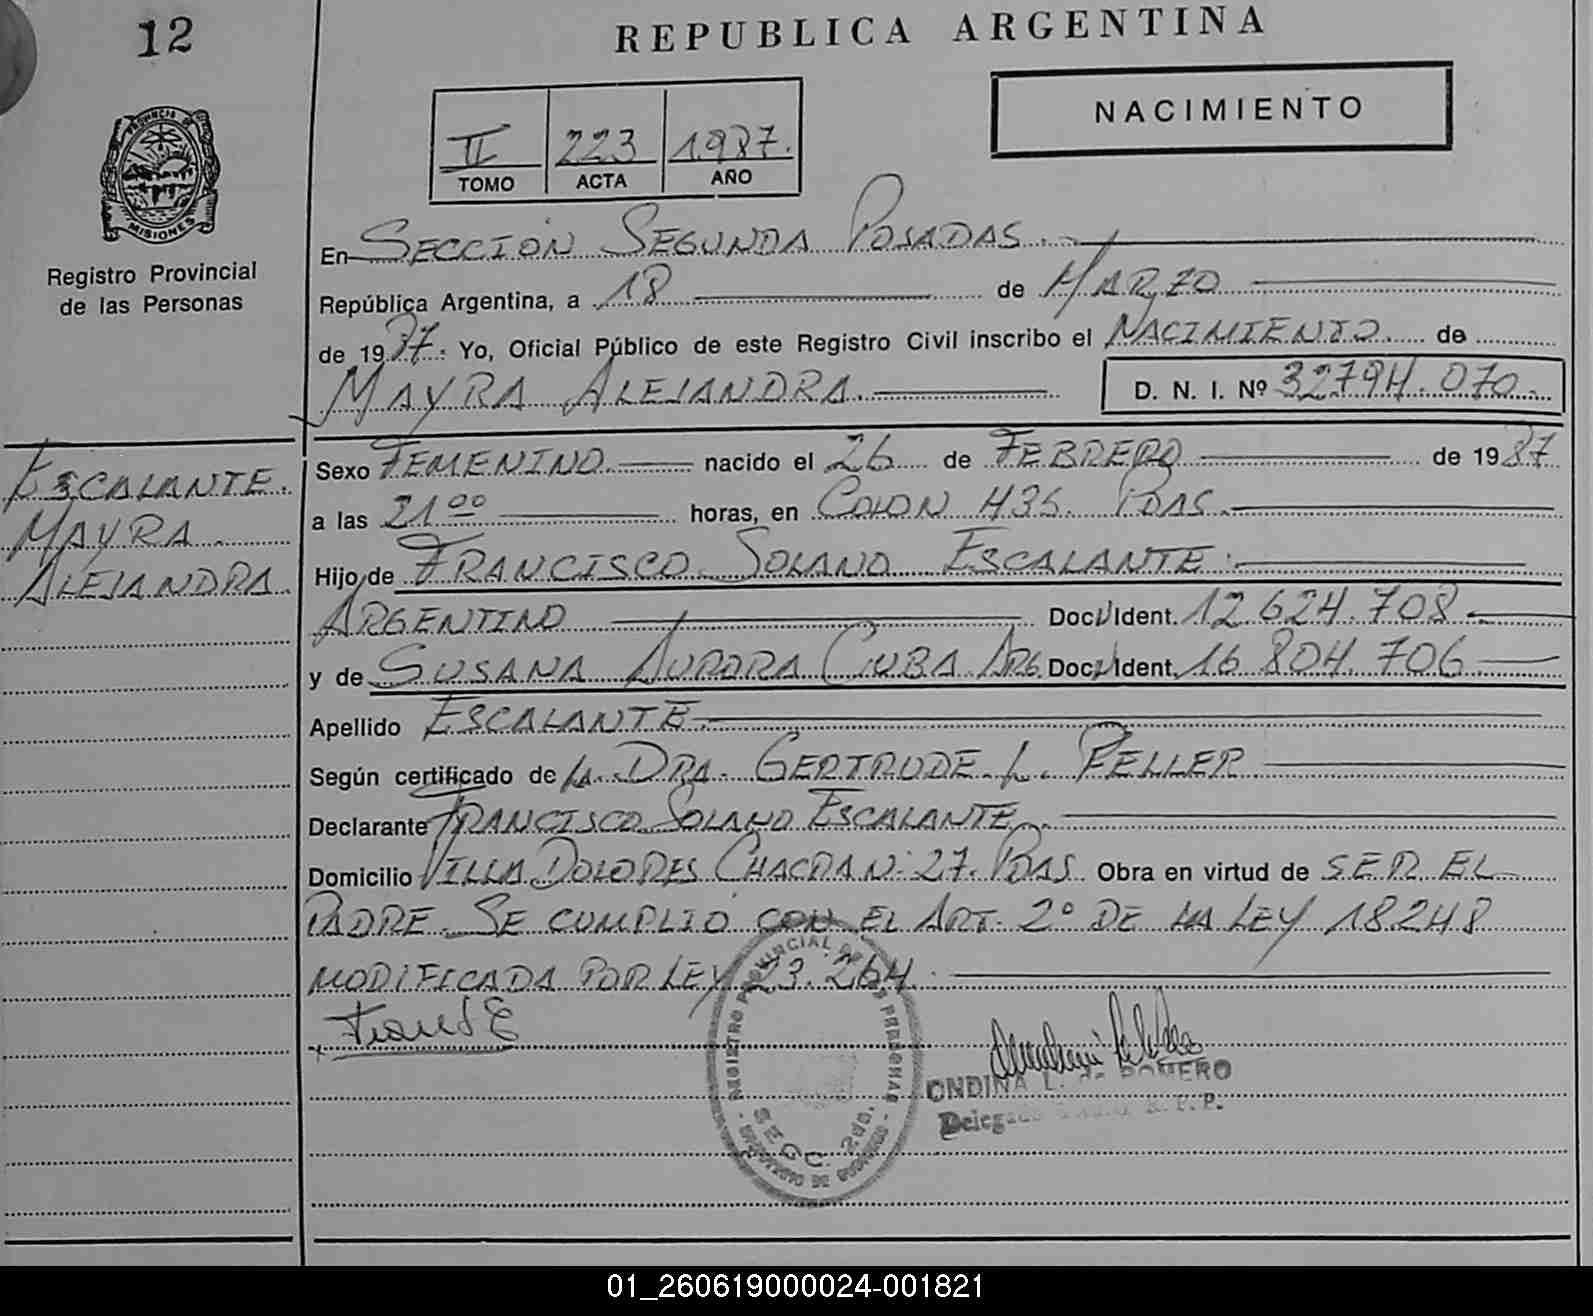 12
REPUBLICA ARGENTINA
NACIMIENTO
II 223 1.987.
TOMO ACTA AÑO
PROVINCIA DE
MISIONES
Registro Provincial
de las Personas
En SECCION SEGUNDA POSADAS.
República Argentina, a 18 de MARZO
de 1987. Yo, Oficial Público de este Registro Civil inscribo el NACIMIENTO de
MAYRA ALEJANDRA. D. N. I. Nº 32794.070.
ESCALANTE.
MAYRA
ALEJANDRA
Sexo FEMENINO nacido el 26 de FEBRERO de 1987
a las 21 00 horas, en COLON 435. PDAS.
Hijo de FRANCISCO SOLANO ESCALANTE.
ARGENTINO Doc. Ident. 12.624.708
y de SUSANA AURORA CIUBA ARG. Doc. Ident. 16.804.706
Apellido ESCALANTE.
Según certificado de LA DRA. GERTRUDE L. PELLER
Declarante FRANCISCO SOLANO ESCALANTE
Domicilio VILLA DOLORES CHACRA N: 27. PDAS Obra en virtud de SER EL
PADRE. SE CUMPLIO CON EL ART. 2º DE LA LEY 18248
MODIFICADA POR LEY 23.264.
REGISTRO PROVINCIAL DE LAS PERSONAS
SECC. 2da.
ONDINA L. DE ROMERO
R. P. P.
01_260619000024-001821